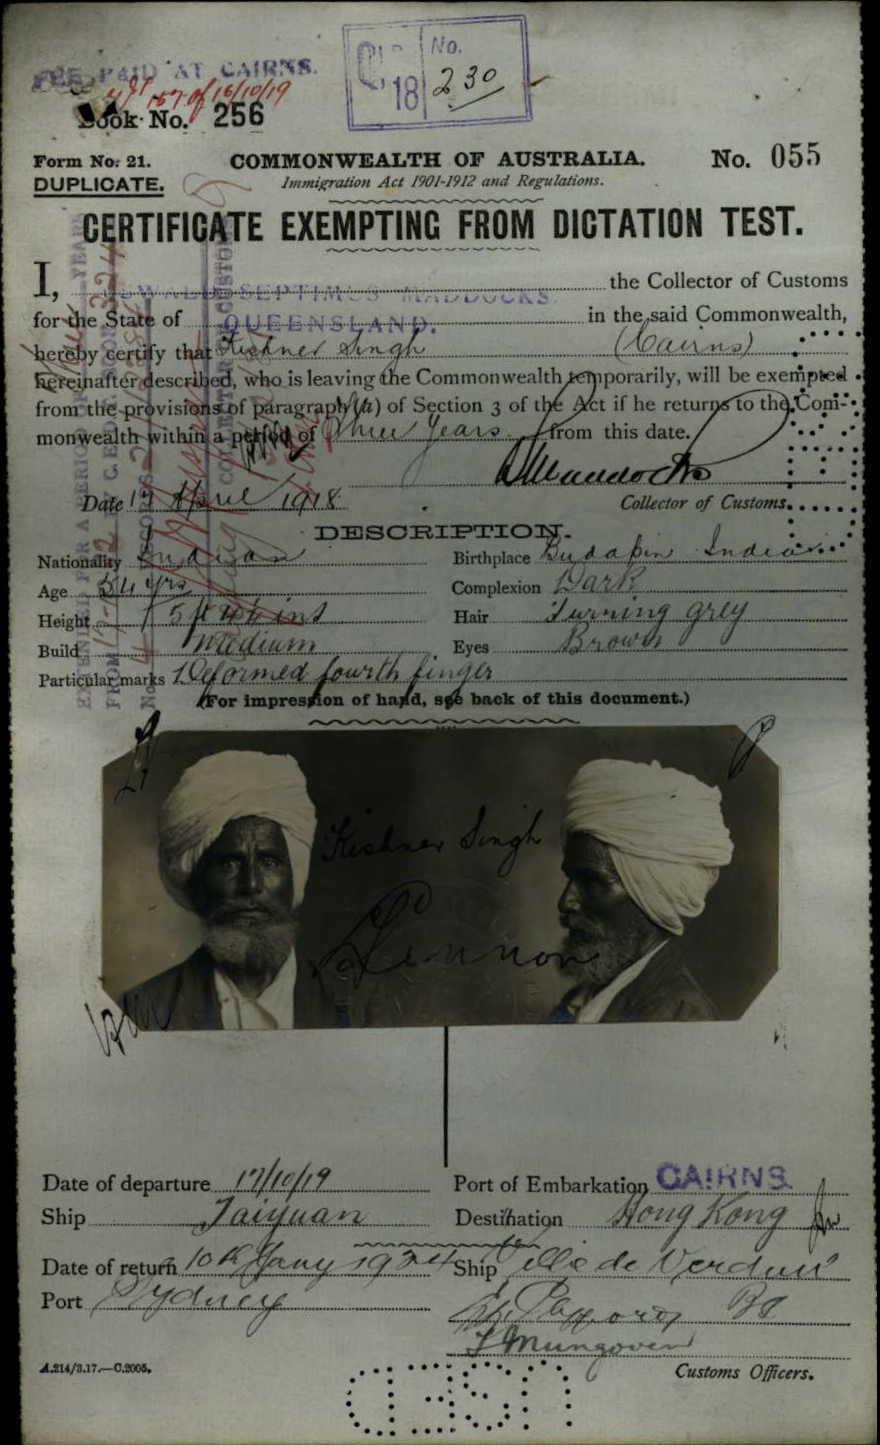 FEE PAID AT CAIRNS.
No.
18 230
157 of 16/10/19
Book No. 256
Form No. 21.
COMMONWEALTH OF AUSTRALIA.
No. 055
DUPLICATE.
Immigration Act 1901-1912 and Regulations.
CERTIFICATE EXEMPTING FROM DICTATION TEST.
I, SEPTIMUS MADDOCKS. the Collector of Customs
for the State of QUEENSLAND. in the said Commonwealth,
hereby certify that Kishner Singh (Cairns)
hereinafter described, who is leaving the Commonwealth temporarily, will be exempted
from the provisions of paragraph (a) of Section 3 of the Act if he returns to the Com-
monwealth within a period of Three Years from this date.
Date 17 April 1918
Collector of Customs.
DESCRIPTION.
Nationality Indian
Birthplace India
Age 54 yrs
Complexion Dark
Height 5 ft ins
Hair Turning grey
Build Medium
Eyes Brown
Particular marks Deformed fourth finger
(For impression of hand, see back of this document.)
Kishner Singh
Lennon
Date of departure 17/10/19
Port of Embarkation CAIRNS.
Ship Taiyuan
Destination Hong Kong
Date of return 10th Jany 1924
Ship Ville de Verdun
Port Sydney
Customs Officers.
A.214/3.17.—C.2005.